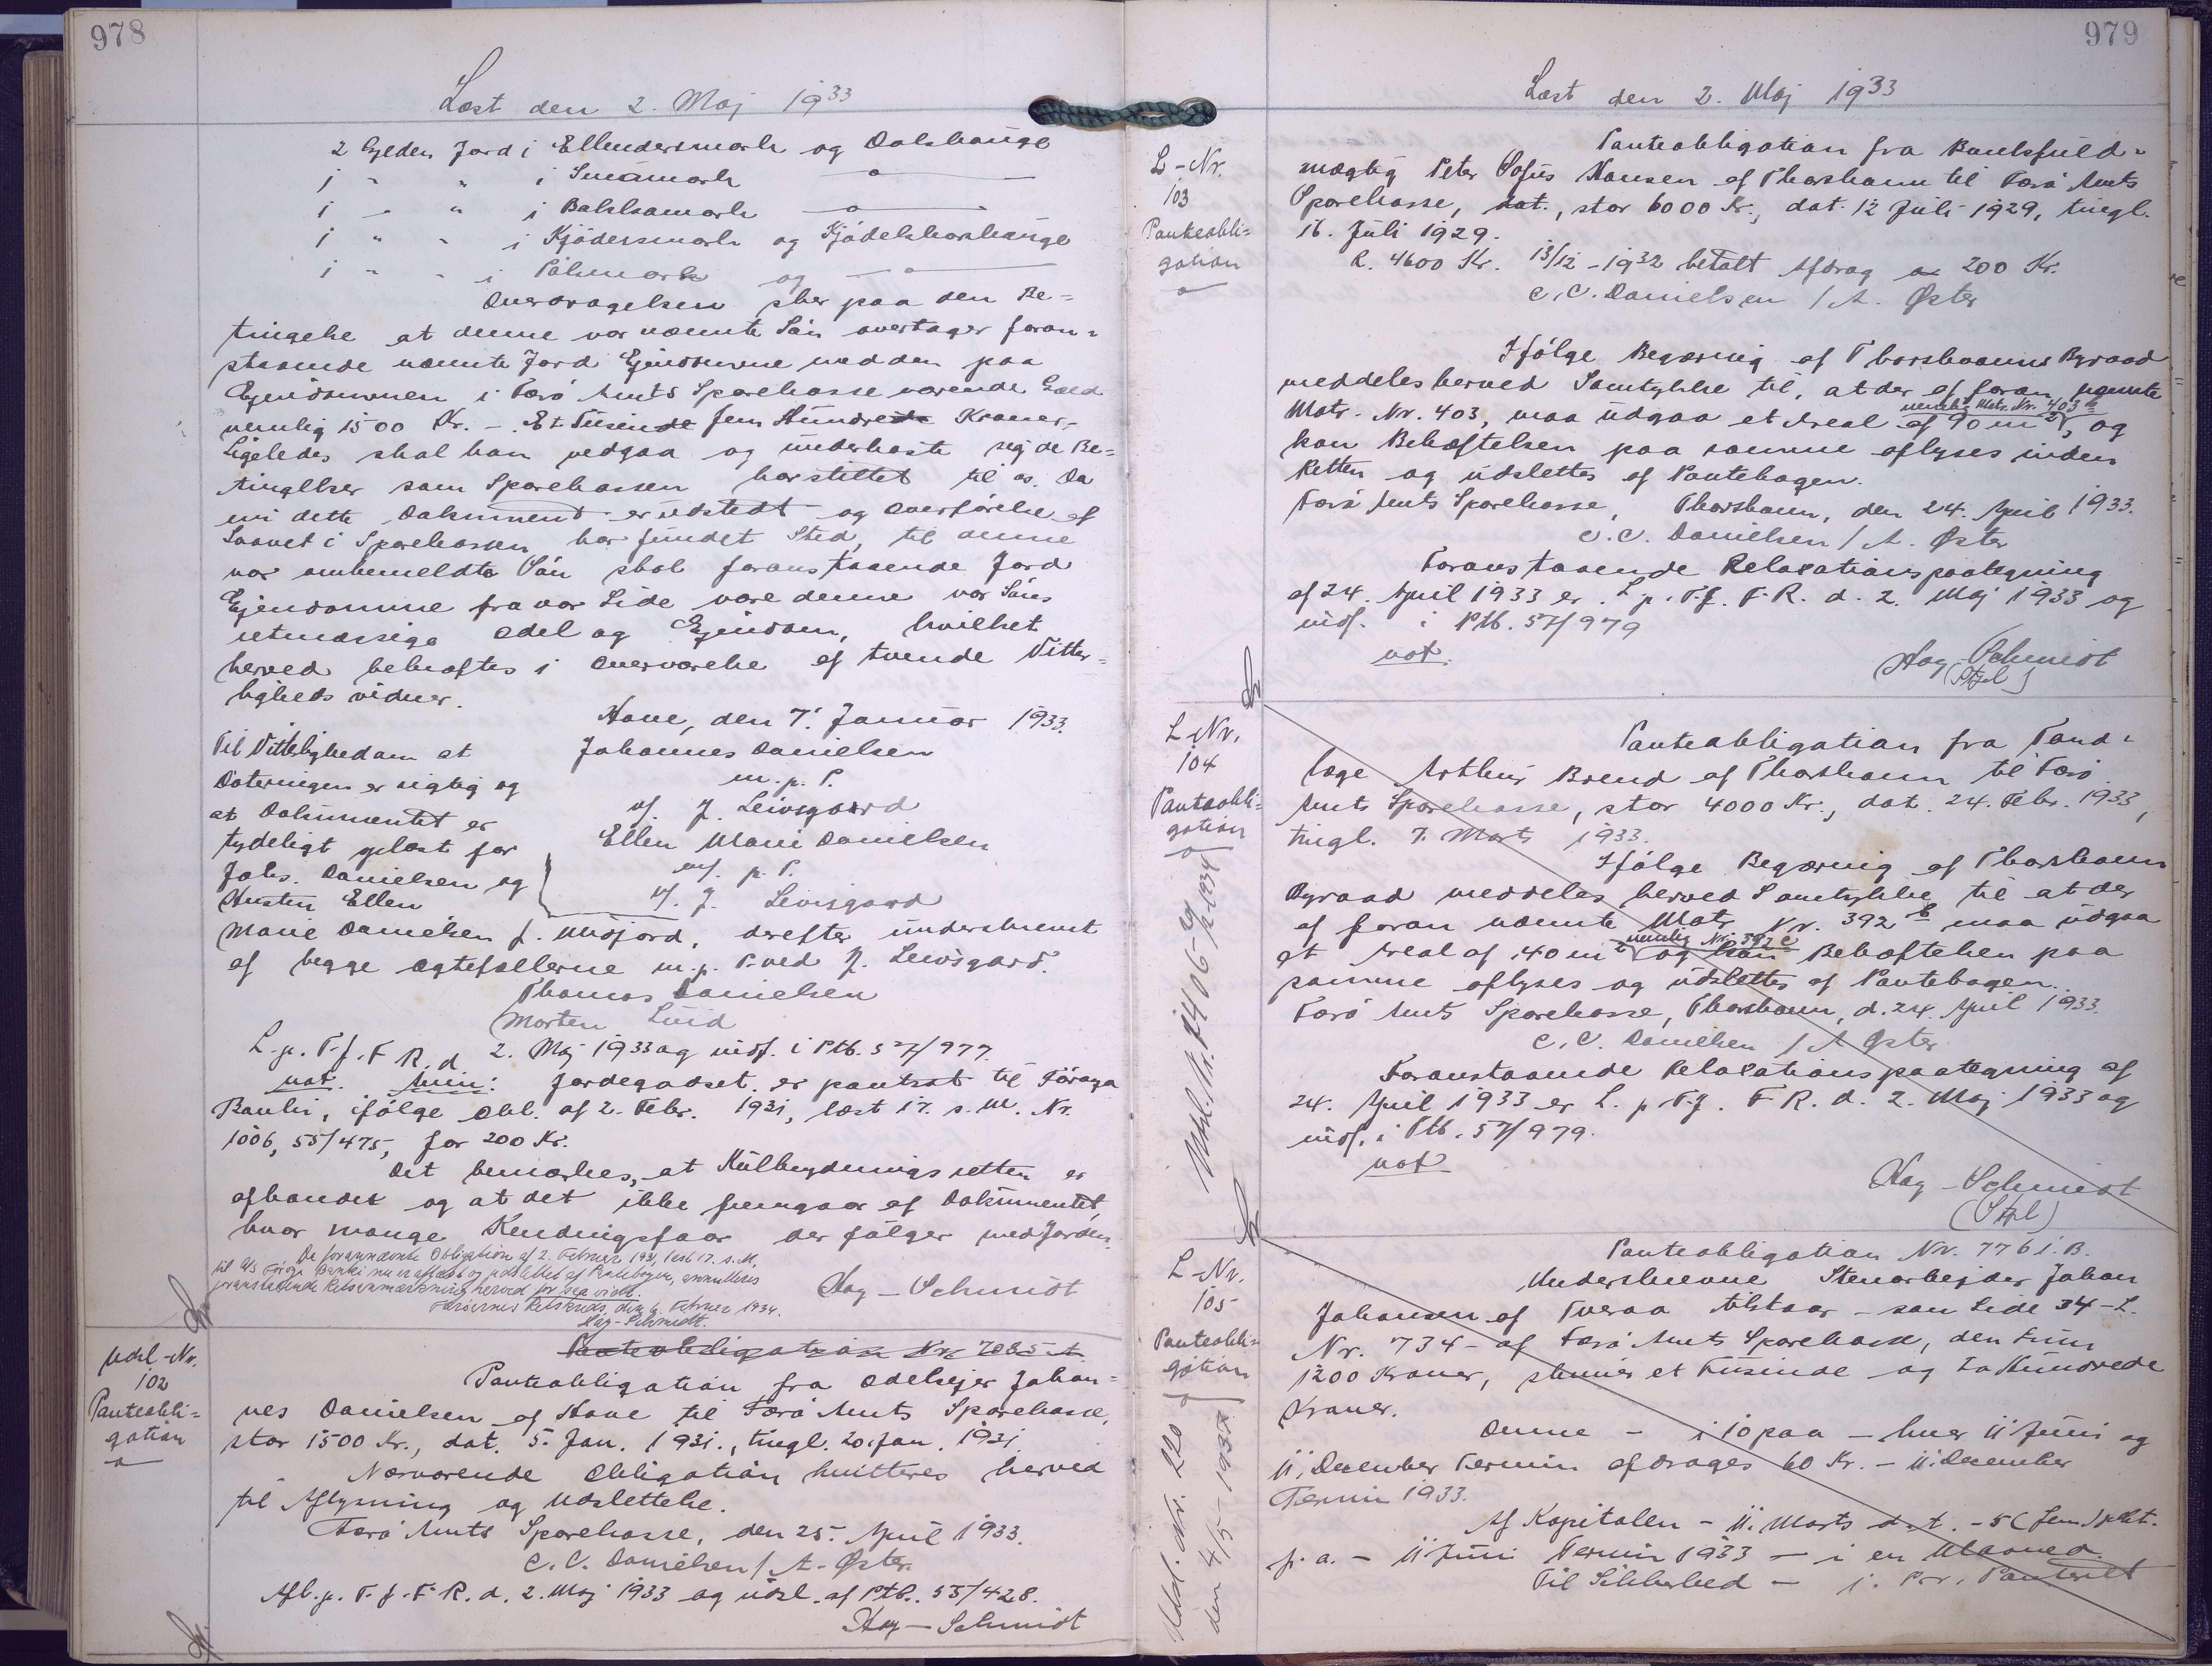 978
Læst den 2. Maj 1933
2 Gylden Jord i Ellendersmark og Dalshauge
1 " " i Smámark
1 - " i Bakkamark
1 " " i Kjödersmark og Kjödelkhorhauge
1 " - i Pálsmark og
Overdragelsen sker paa den Be=
tingelse at denne vor nævnte Sön overtager foran=
staaende nævnte Jord Ejendomme med den paa
Ejendommen i Færö Amts Sparekasse værende Gæld
nemlig 1500 Kr. - Et Tusinde fem Hundrede Kroner,-
Ligeledes skal han vedgaa og underkaste sig de Be=
tingelser som Sparekassen har stillet til os. Da
nu dette Dokument er udstedt og Overförelse af
Laanet i Sparekassen har fundet Sted, til denne
vor ombemeldte Sön skal foranstaaende Jord
Ejendomme fra vor Side være denne vor Söns
retmæssige Odel og Ejendom, hvilket
herved bekræftes i Overværelse af tvende Vitter=
ligheds vidner.
Hove, den 7. Januar 1933.
Til Vitterlighed om at
Dateringen er rigtig og
at Dokumentet er
tydeligt oplæst for
Johs. Danielsen og
Hustru Ellen
Johannes Danielsen
m. p. P.
v/. J. Leivsgaard
Ellen Marie Danielsen
m/. p. P.
v/. J. Leivsgard
Marie Danielsen f. Midjord, derefter underskrevet
af begge Ægtefællerne m. p. P. ved J. Leivsgard.
Thomas Danielsen
Morten Lvid
L. p. T. f. F R. d. 2. Maj 1933 og indf. i Ptb. 57/977.
not. Anm: Jordegodset er pantsat til Föroya
Banki, ifölge Obl. af 2. Febr. 1931, læst 17. s. M. Nr.
1006, 55/475, for 200 Kr.
Det bemærkes, at Kulbrydningsretten er
afhændet og at det ikke fremgaar af Dokumentet,
hvor mange Kendingsfaar der fölger med Jorden.
Da forannævnte Obligation af 2. Februar 1931, læst 17. s. M.
til A/s Föroya Banki nu er aflæst og udslettet af Pantebogen, annulleres
foranstaaende Retsanmærkning herved for saa vidt.
Færöernes Retskreds, den 6. Februar 1934.
Hag-Schmidt.
Hag - Schmidt
Udsl-Nr.
102
Panteobli=
gation
Panteobligation Nr. 7085 A
Panteobligation fra Odelsejer Johan=
nes Danielsen af Hove til Færö Amts Sparekasse,
stor 1500 Kr., dat. 5. Jan. 1931., tingl. 20. Jan. 1931.
Nærværende Obligation kvitteres herved
til Aflysning og Udslettelse.
Færö Amts Sparekasse, den 25. April 1933.
C. C. Danielsen / A. Øster
Afl. p. T. f. F. R. d. 2. Maj 1933 og udsl. af Ptb. 55/428.
Hag - Schmidt
979
Læst den 2. Maj 1933
L-Nr.
103
Panteobli=
gation
Panteobligation fra Bankfuld=
mægtig Peter Sofus Hansen af Thorshavn til Færö Amts
Sparekasse, dat., stor 6000 Kr., dat. 12 Juli 1929, tingl.
16. Juli 1929.
R. 4600 Kr. 13/12 - 1932 betalt Afdrag 200 Kr.
C. C. Danielsen / A. Øster
Ifölge Begæring af Thorshavns Byraad
meddeles herved Samtykke til, at der af foran nævnte
Matr. Nr. 403, maa udgaa et Areal af 90 m2, og
nemlig Matr. Nr. 403 a
kan Behæftelsen paa samme aflyses inden
Retten og udslettes af Pantebogen.
Færö Amts Sparekasse, Thorshavn, den 24. April 1933.
C. C. Danielsen / A. Øster
Foranstaaende Relaxationspaategning
af 24. April 1933 er L. p. T. f. F. R. d. 2. Maj 1933 og
indf. i Ptb. 57/979
not.
Hag - Schmidt
(Stpl)
L-Nr.
104
Panteobli=
gation
Panteobligation fra Tand=
læge Arthur Brend af Thorshavn til Færö
Amts Sparekasse, stor 4000 Kr., dat. 24. Febr. 1933,
tingl. 7. Marts 1933.
Ifölge Begæring af Thorshavns
Byraad meddeles herved Samtykke til at der
af foran nævnte Matr. Nr. 392 b maa udgaa
et Areal af 40 m2 og kan Behæftelsen paa
nemlig Nr. 392 c
samme aflyses og udslettes af Pantebogen.
Færö Amts Sparekasse, Thorshavn, d. 24. April 1933.
C. C. Danielsen / A Øster
Foranstaaende Relaxationspaategning af
24. April 1933 er L. p. T. f. F R. d. 2. Maj 1933 og
indf. i Ptb. 57/979.
not
Hag - Schmidt
(Stpl)
L-Nr.
105
Panteobli=
gation
Udsl. Nr. 220
den 4/5 - 1938
Panteobligation Nr. 7761. B.
Underskrevne Stenarbejder Johan
Johansen af Tveraa tilstaar - som Side 34-L.
Nr. 734 - af Færö Amts Sparekasse, den Sum
1200 Kroner, skriver et Tusinde og to Hundrede
Kroner.
Denne - i 10 paa - hver 11 Juni og
11. December Termin afdrages 60 Kr. - 11. December
Termin 1933.
Af Kapitalen - 11. Marts d. A. - 5 (fem) pCt.
p. a. - 11 Juni Termin 1933 - i en Maaned.
Til Sikkerhed - 1. Pr. Panteret